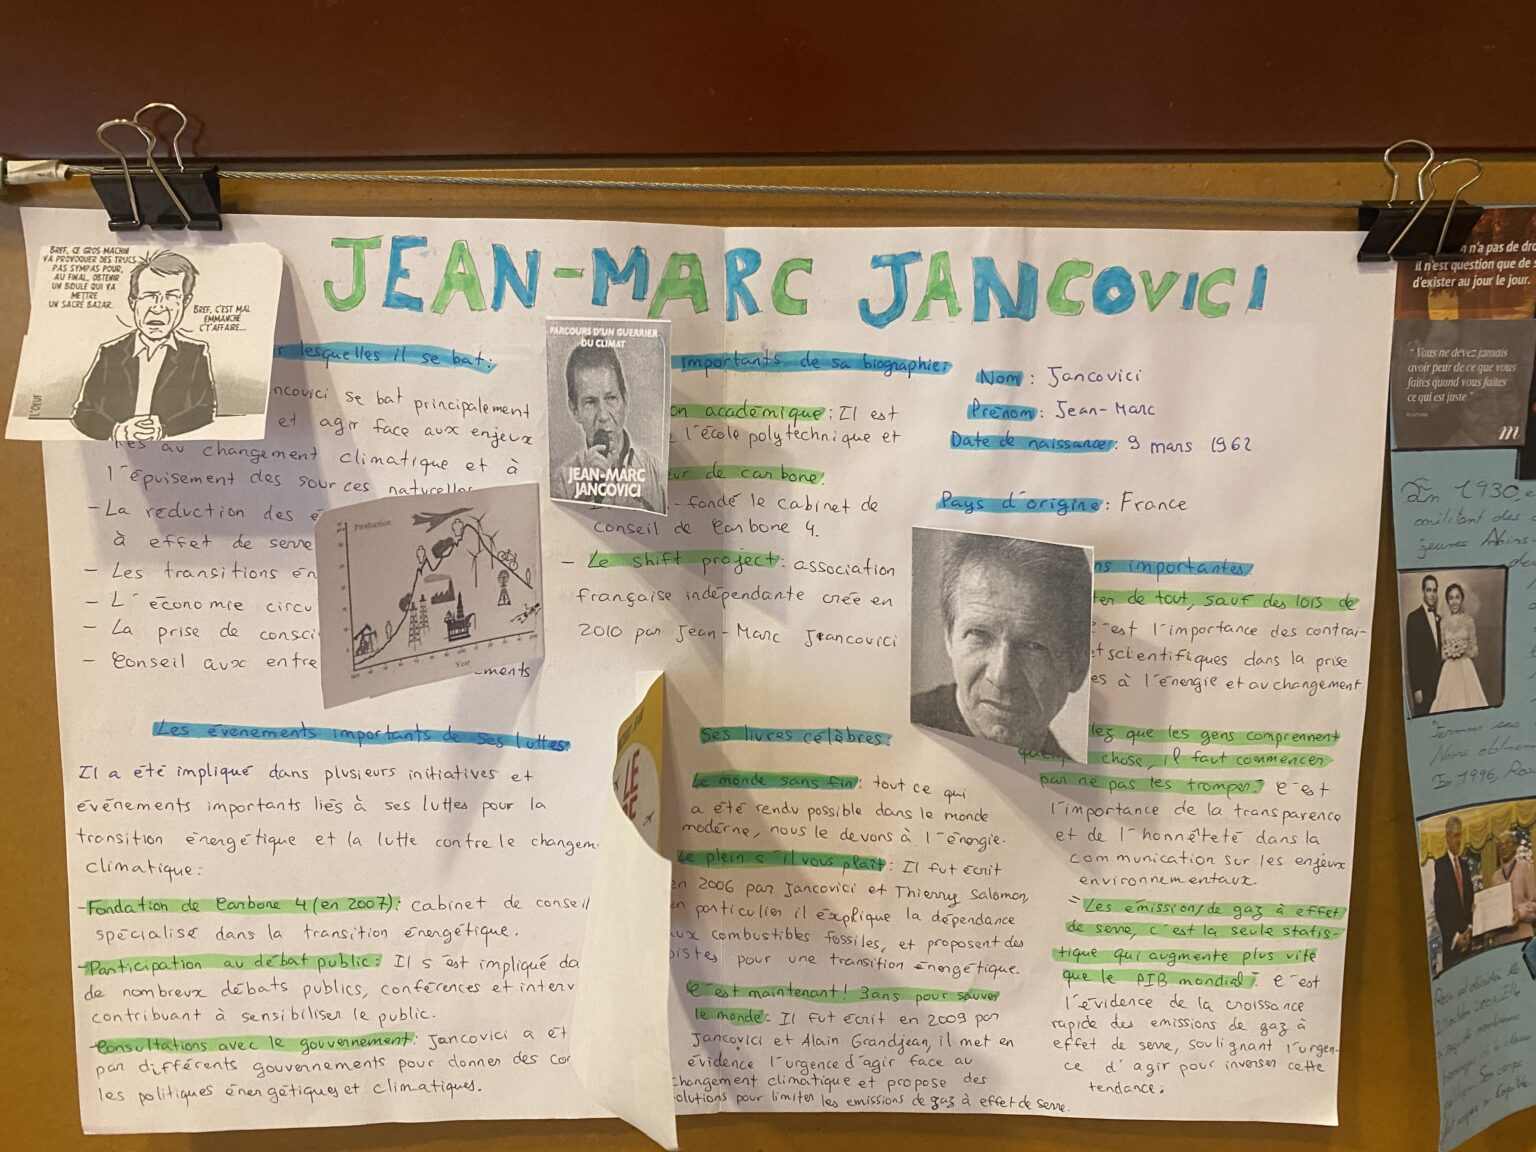 JEAN-MARC JANCOVICI
BREF, CE GROS MACHIN
VA PROVOQUER DES TRUCS
PAS SYMPAS POUR,
AU FINAL, OBTENIR
UN BIDULE QUI VA
METTRE
UN SACRÉ BAZAR.
BREF, C'EST MAL
EMMANCHÉ
C'T'AFFAIRE...
L'OEUF
lesquelles il se bat:
ncovici se bat principalement
et agir face aux enjeux
liés au changement climatique et à
l'épuisement des sources naturelles
- La reduction des
à effet de serre
- Les transitions én
- L'économie circu
- La prise de consci
- Conseil aux entre
ements
Production
Year
Les évenements importants de ses luttes
Il a été impliqué dans plusieurs initiatives et
évènements importants liés à ses luttes pour la
transition énergétique et la lutte contre le changem
climatique:
- Fondation de Carbone 4 (en 2007): cabinet de conseil
spécialisé dans la transition énergétique.
- Participation au débat public: Il s'est impliqué da
de nombreux débats publics, conférences et interv
contribuant à sensibiliser le public.
- Consultations avec le gouvernement: Jancovici a ét
par différents gouvernements pour donner des co
les politiques énergétiques et climatiques.
PARCOURS D'UN GUERRIER
DU CLIMAT
JEAN-MARC
JANCOVICI
importants de sa biographie:
on académique: Il est
l'école polytechnique et
ur de carbone.
- fondé le cabinet de
conseil de Carbone 4.
- Le shift project: association
française indépendante crée en
2010 par Jean-Marc Jeancovici
LE
Ses livres célèbres:
Le monde sans fin: tout ce qui
a été rendu possible dans le monde
moderne, nous le devons à l'énergie.
Le plein s'il vous plaît: Il fut écrit
en 2006 par Jancovici et Thierry Salomon,
en particulier il explique la dépendance
aux combustibles fossiles, et proposent des
pistes pour une transition énergétique.
C'est maintenant! 3ans pour sauver
le monde: Il fut écrit en 2009 par
Jancovici et Alain Grandjean, il met en
évidence l'urgence d'agir face au
changement climatique et propose des
solutions pour limiter les emissions de gaz à effet de serre.
Nom: Jancovici
Prénom: Jean-Marc
Date de naissance: 9 mars 1962
Pays d'origine: France
ns importantes.
ter de tout, sauf des lois de
C'est l'importance des contrai-
et scientifiques dans la prise
es à l'énergie et au changement
lez que les gens comprennent
quelque chose, il faut commencer
par ne pas les tromper." C'est
l'importance de la transparence
et de l'honnêteté dans la
communication sur les enjeux
environnementaux.
- "Les émissions de gaz à effet
de serre, c'est la seule statis-
tique qui augmente plus vite
que le PIB mondial": C'est
l'évidence de la croissance
rapide des emissions de gaz à
effet de serre, soulignant l'urgen-
ce d'agir pour inverser cette
tendance.
n'a pas de dro
il n'est question que de s
d'exister au jour le jour.
" Vous ne devez jamais
avoir peur de ce que vous
faites quand vous faites
ce qui est juste "
Rosa Parks
m
En 1930,
militant des
jeunes Noirs
En 1996, Ros